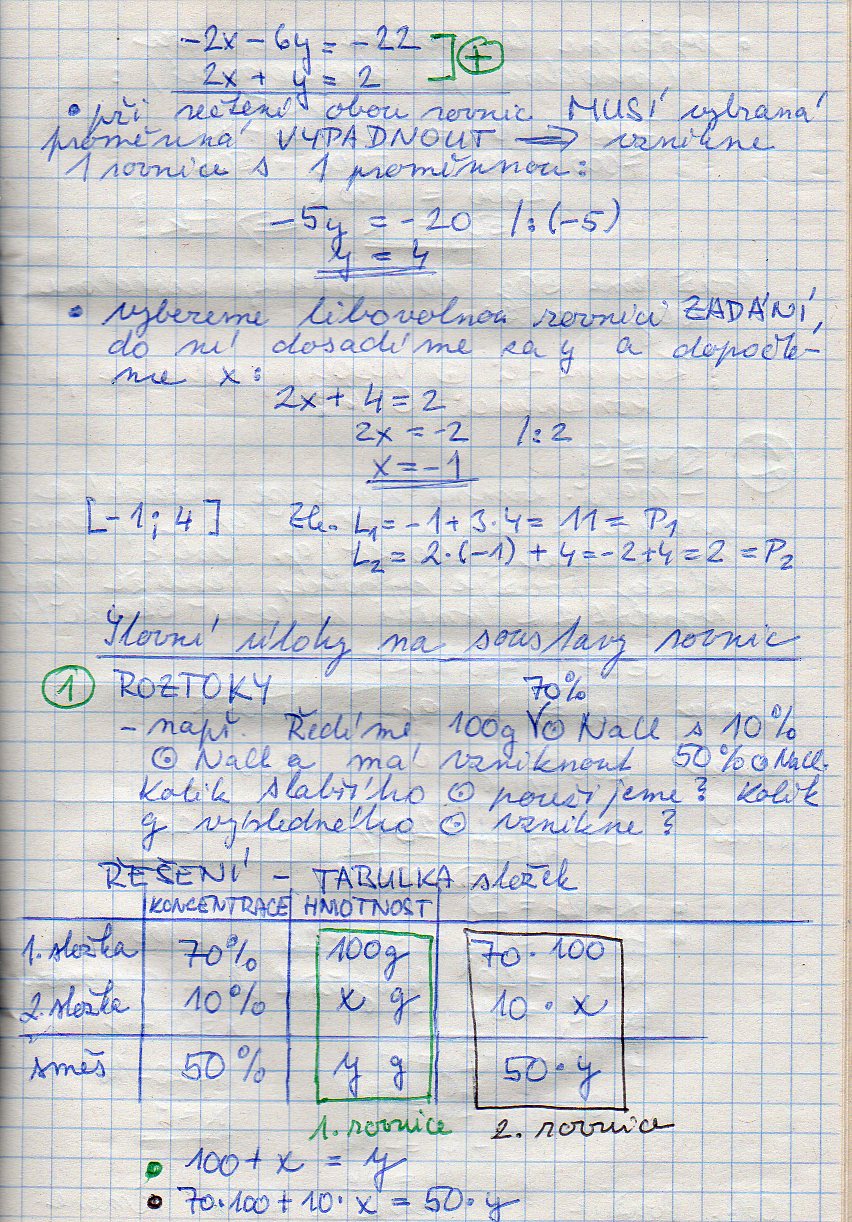 -2x - 6y = -22
2x + y = 2 ] +
• při řešení obou rovnic MUSÍ vybraná
proměnná VYPADNOUT ⟹ vznikne
1 rovnice s 1 proměnnou:
-5y = -20 /:(-5)
y = 4
• vybereme libovolnou rovnici ZADÁNÍ,
do ní dosadíme za y a dopočte-
me x:
2x + 4 = 2
2x = -2 /:2
x = -1
[-1; 4] Zk. L₁ = -1 + 3·4 = 11 = P₁
L₂ = 2·(-1) + 4 = -2+4 = 2 = P₂
Slovní úlohy na soustavy rovnic
1 ROZTOKY 70%
- např. Ředíme 100g ⊙ NaCl s 10%
⊙ NaCl a má vzniknout 50% ⊙ NaCl.
Kolik slabšího ⊙ použijeme? Kolik
g výsledného ⊙ vznikne?
ŘEŠENÍ - TABULKA složek
KONCENTRACE HMOTNOST
1. složka 70% 100g 70·100
2. složka 10% x g 10·x
směs 50% y g 50·y
1. rovnice 2. rovnice
• 100 + x = y
• 70·100 + 10·x = 50·y